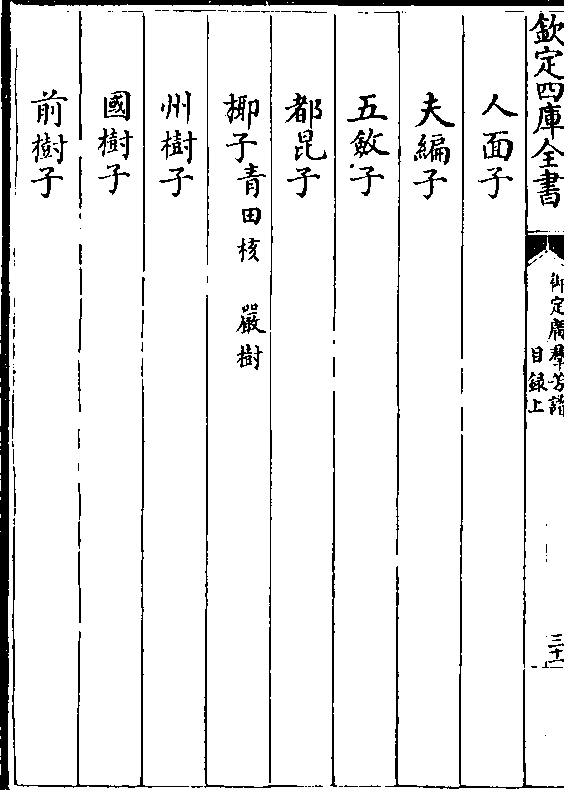 欽定四庫全書
御定廣羣芳譜
目録上
三十
人面子
夫編子
五斂子
都昆子
椰子青田核 嚴樹
州樹子
國樹子
前樹子